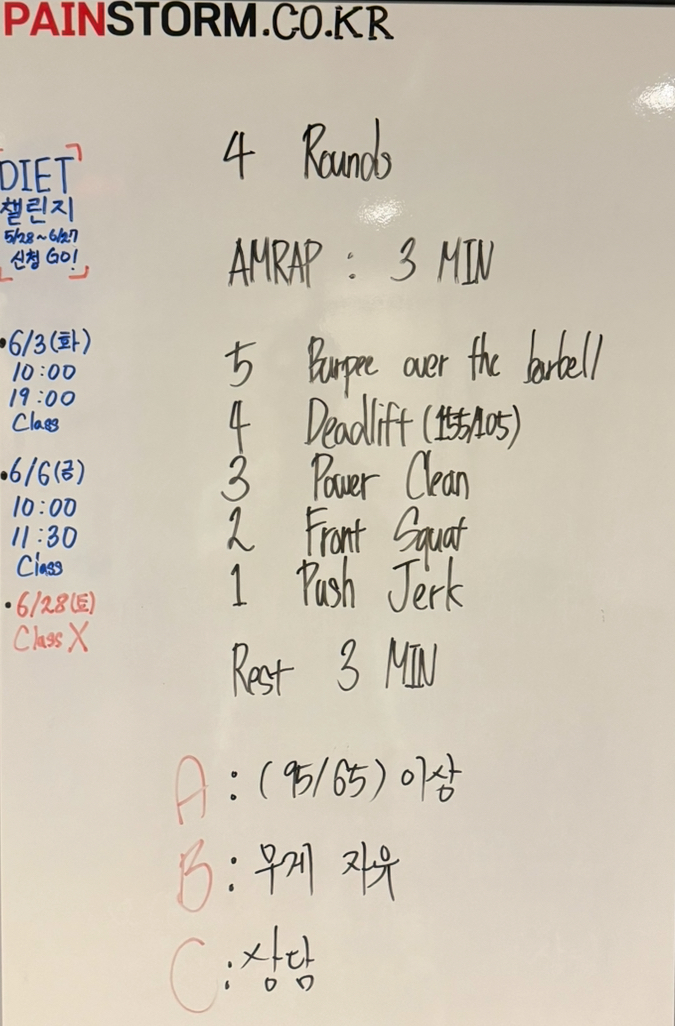 PAINSTORM.CO.KR
DIET
챌린지
5/28~6/27
신청 GO!
•6/3(화)
10:00
19:00
Class
•6/6(금)
10:00
11:30
Class
•6/28(토)
Class X
4 Rounds
AMRAP : 3 MIN
5 Burpee over the barbell
4 Deadlift (155/105)
3 Power Clean
2 Front Squat
1 Push Jerk
Rest 3 MIN
A : (95/65) 이상
B : 무게 자유
C : 상담